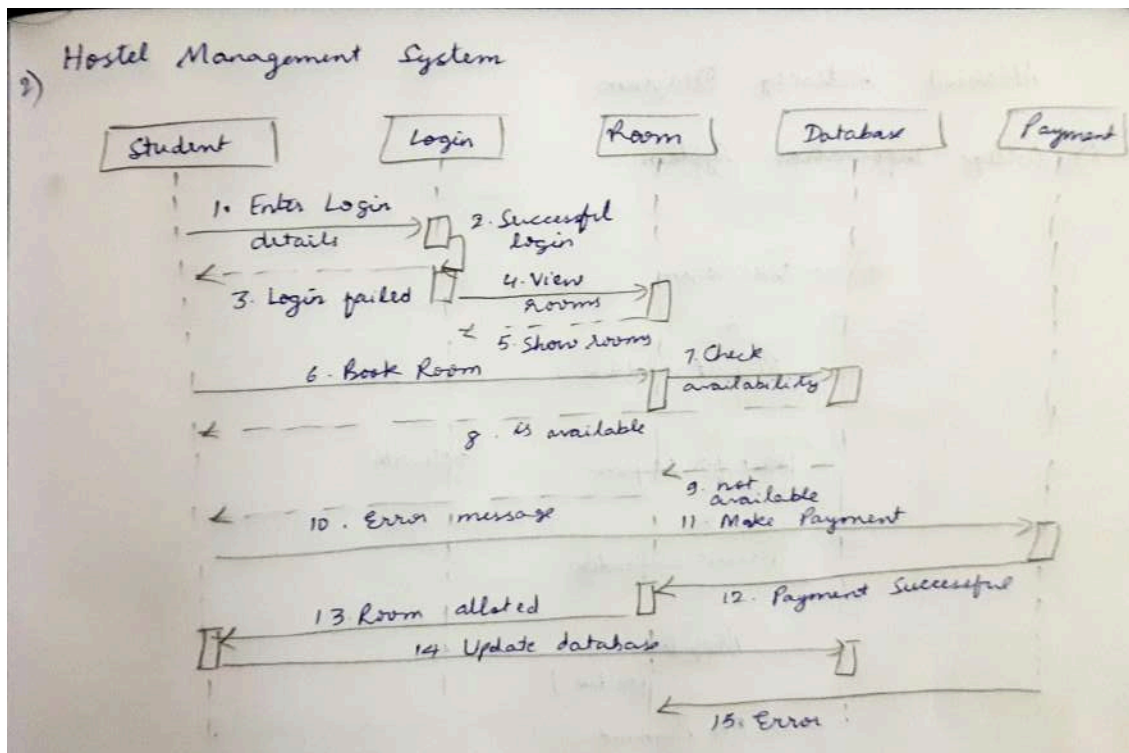 Hostel Management System
2)
Student
Login
Room
Database
Payment
1. Enter Login
details
2. Successful
login
3. Login failed
4. View
rooms
5. Show rooms
6. Book Room
7. Check
availability
8. is available
9. not
available
10. Error message
11. Make Payment
12. Payment Successful
13. Room alloted
14. Update database
15. Error